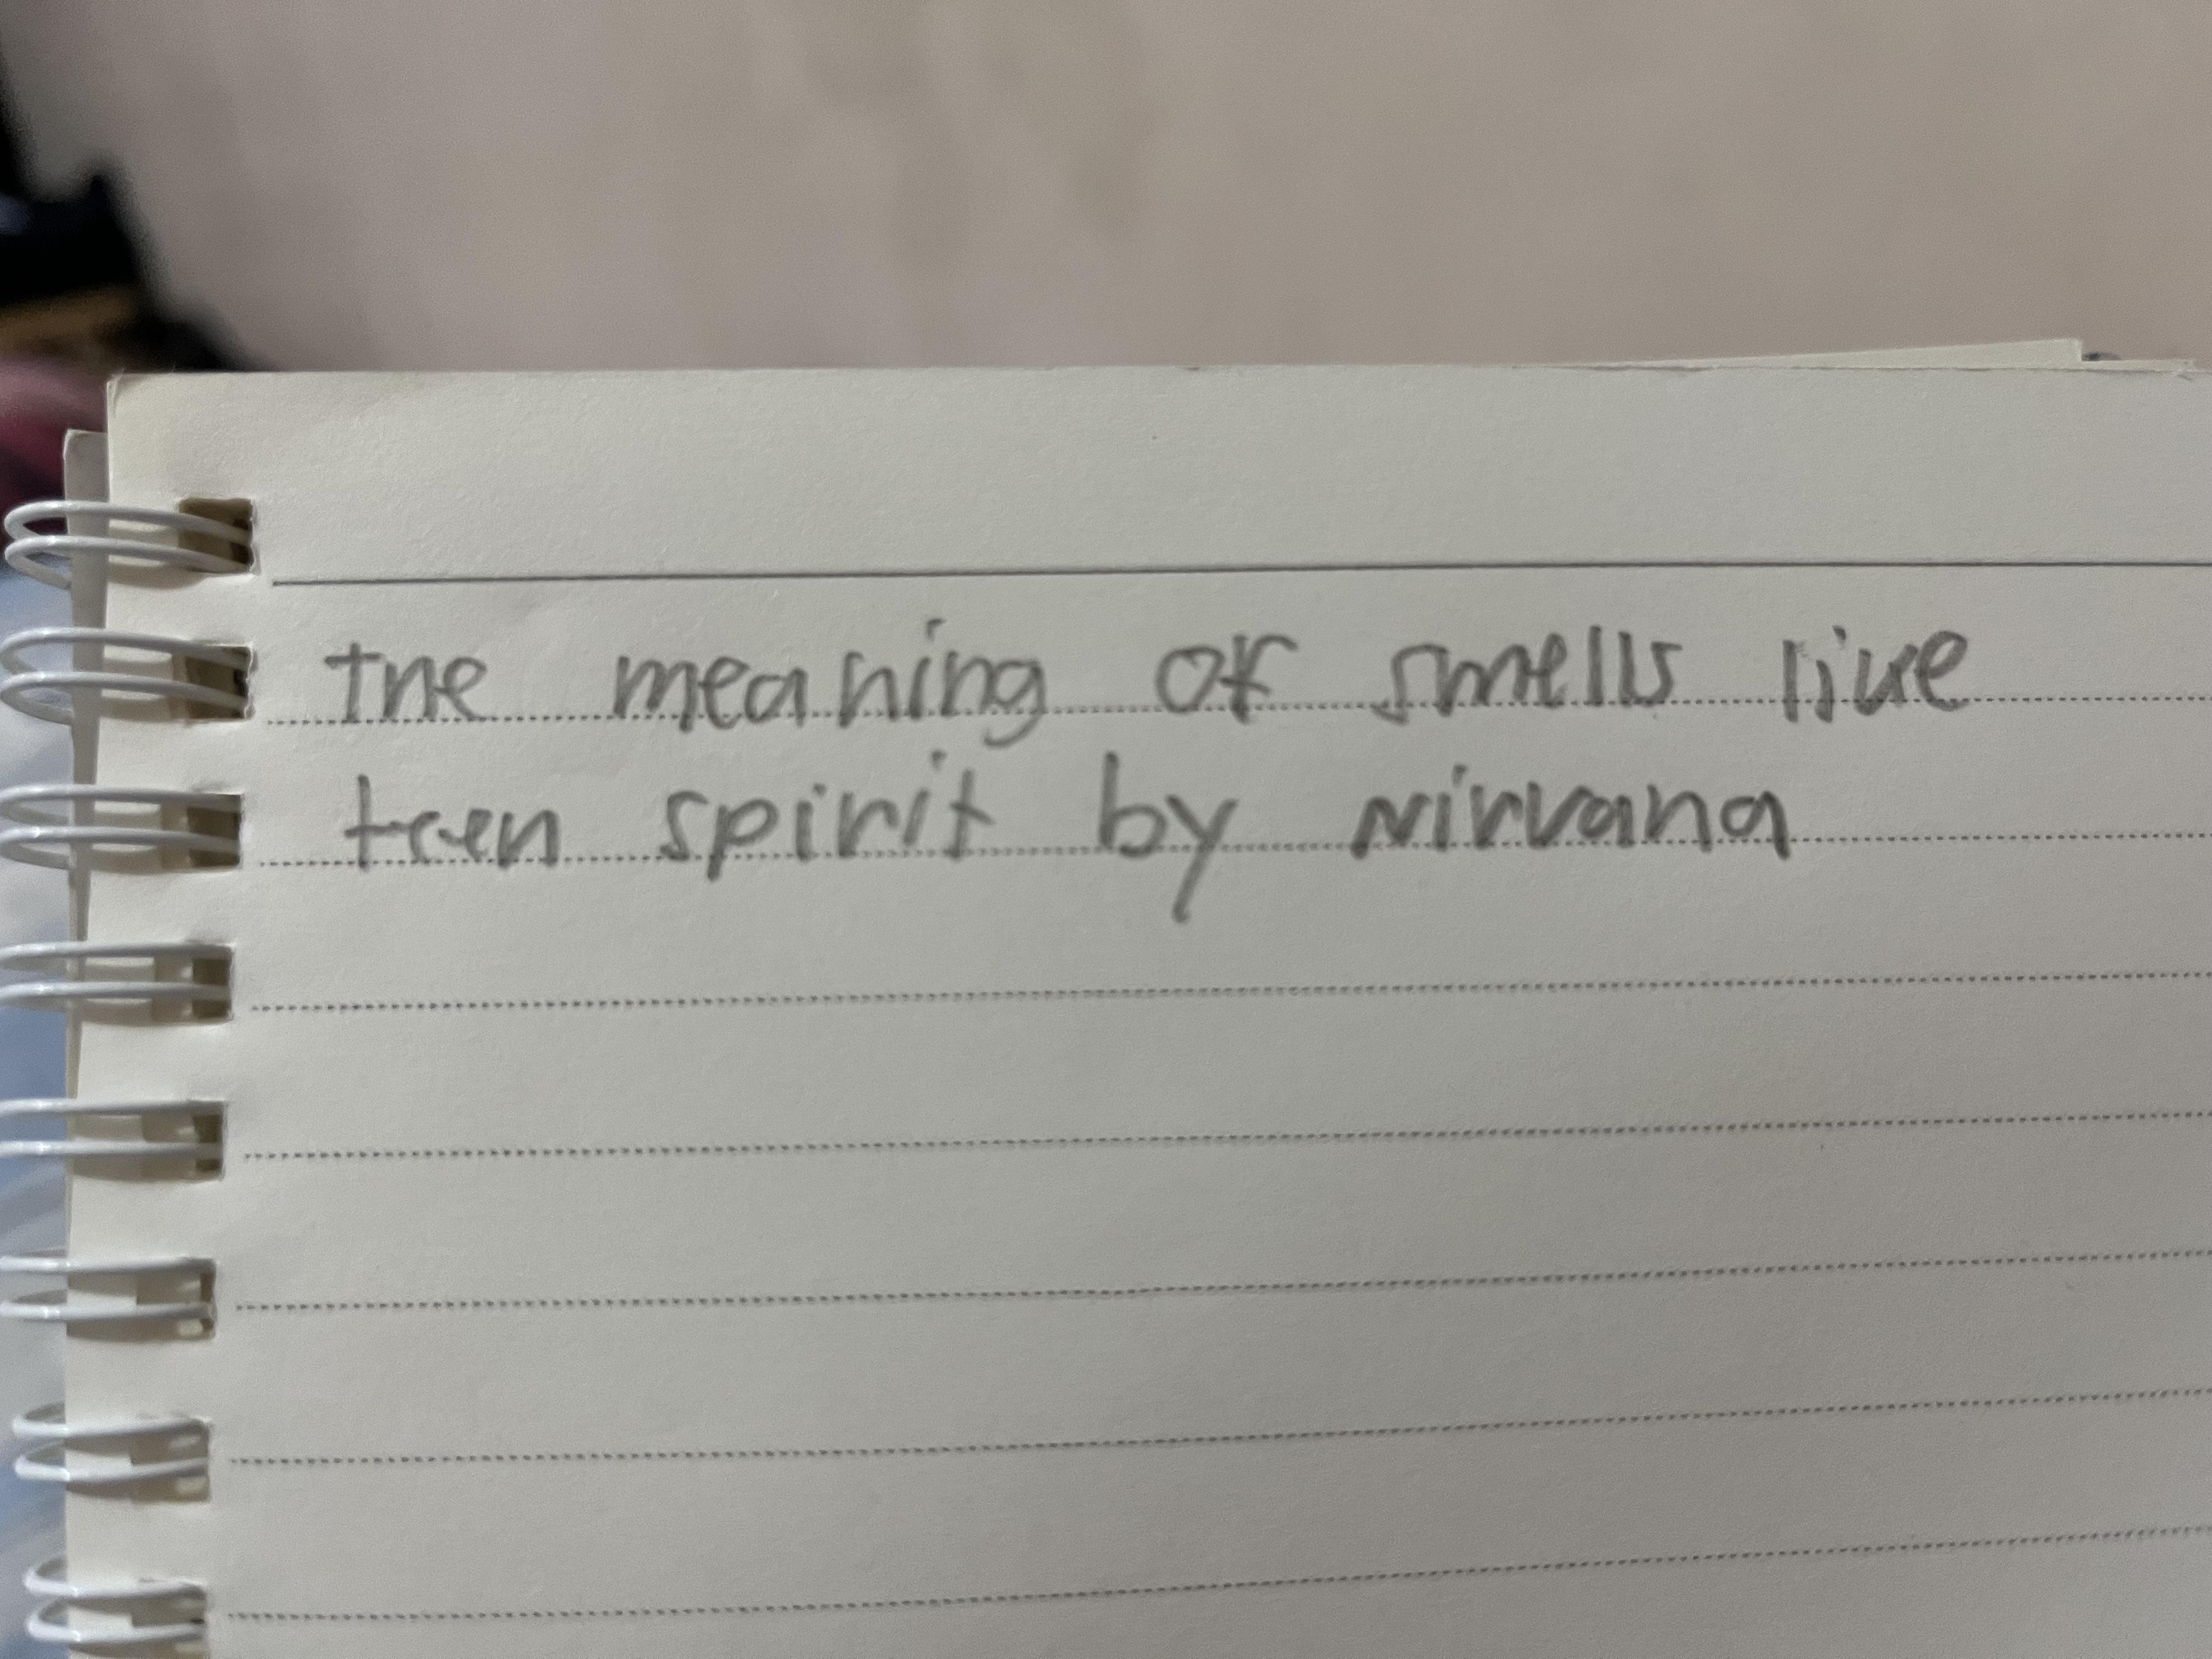 the meaning of smells like
teen spirit by Nirvana